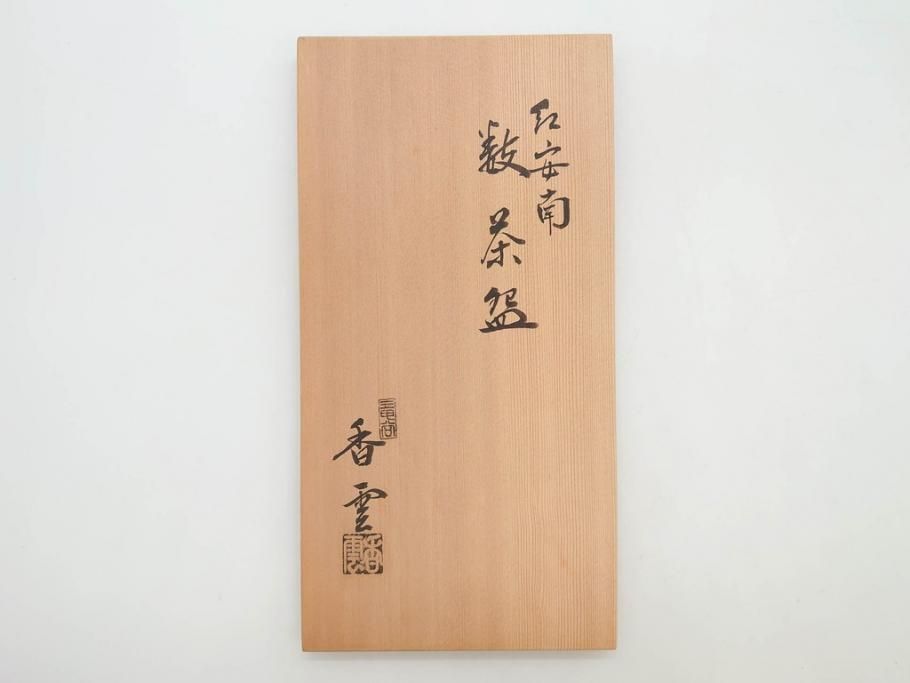 紅安南
数茶盌
香雲
香雲